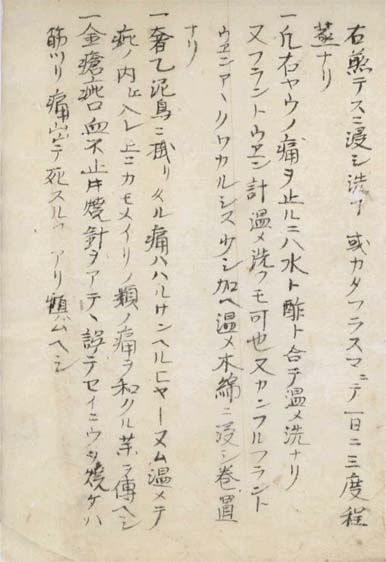 右煎テスニ浸シ洗フ或カタフラスマニテ一日ニ三度程
蒸ナリ
一凡右ヤウノ痛ヲ止ルニハ水ト酢ト合テ温メ洗ナリ
又フラントウエン計温メ洗フモ可也又カンフルフラント
ウエンアハクワカルシス少シ加ヘ温メ木綿ニ浸シ巻置
ナリ
一奢乙泥鳥ニ成リタル痛ハハルサンヘルヒヤーヌム温メテ
疵ノ内ニ入レ上ニカモメイリノ類ノ痛ヲ和クル薬ヲ傅ヘシ
一金瘡疵口血不止片焼針ヲアテヽ誤テセイニウヲ焼ケハ
筋ツリ痛出テ死スルヿアリ慎ムヘシ